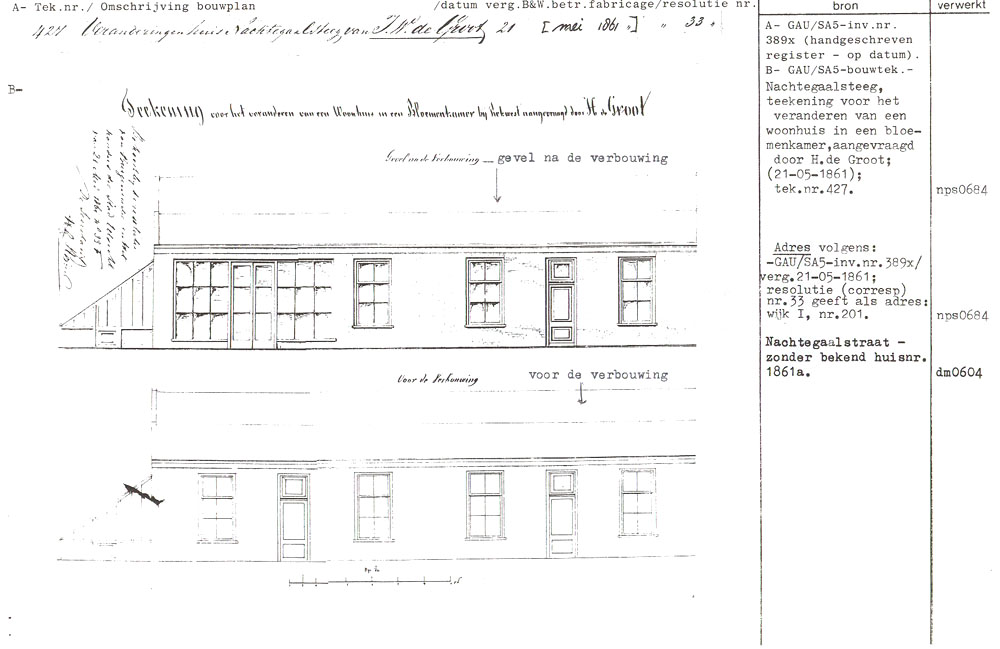 A- Tek.nr./ Omschrijving bouwplan /datum verg.B&W.betr.fabricage/resolutie nr.
427 Veranderingen huis i. Nachtegaalsteeg van J.W. de Groot 21 [mei 1861 "] " " 33 "
B-
Teekening voor het veranderen van een Woonhuis in een Bloemenkamer bij Rekwest aangevraagd door H. de Groot
Gevel na de Verbouwing — gevel na de verbouwing
Voor de Verbouwing voor de verbouwing
bron
A- GAU/SA5-inv.nr.
389x (handgeschreven
register - op datum).
B- GAU/SA5-bouwtek.-
Nachtegaalsteeg,
teekening voor het
veranderen van een
woonhuis in een bloe-
menkamer,aangevraagd
door H.de Groot;
(21-05-1861);
tek.nr.427.
Adres volgens:
-GAU/SA5-inv.nr.389x/
verg.21-05-1861;
resolutie (corresp)
nr.33 geeft als adres:
wijk I, nr.201.
Nachtegaalstraat -
zonder bekend huisnr.
1861a.
verwerkt
nps0684
nps0684
dm0604